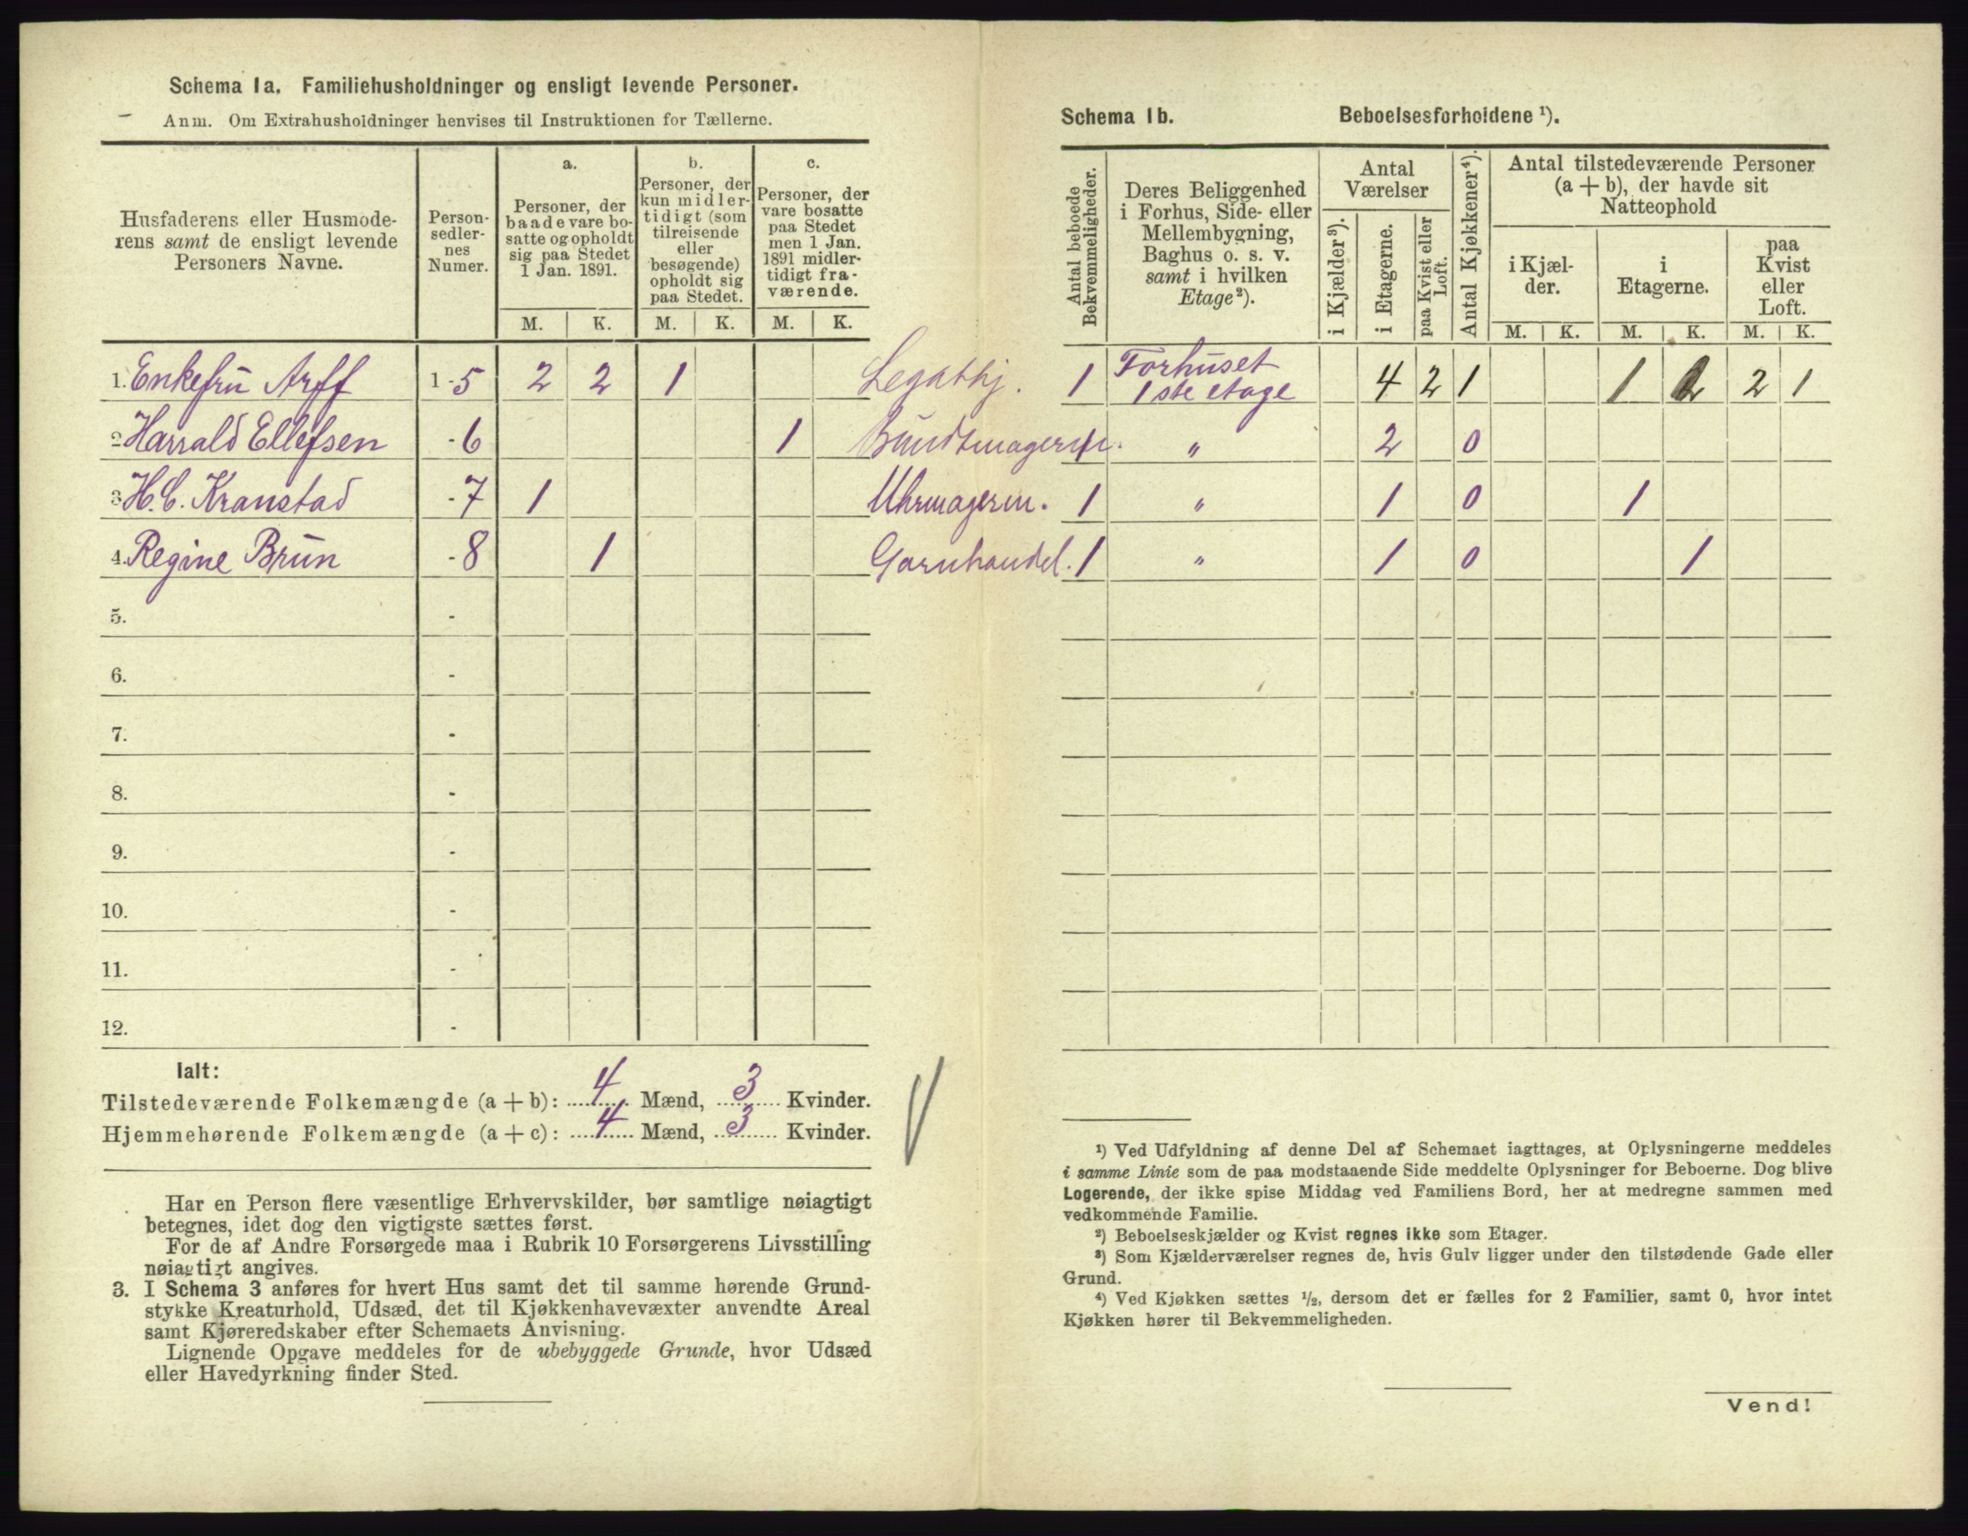 Schema 1a. Familiehusholdninger og ensligt levende Personer.
Anm. Om Extrahusholdninger henvises til Instruktionen for Tællerne.
Husfaderens eller Husmode-
rens samt de ensligt levende
Personers Navne.
Person-
sedler-
nes
Numer.
a.
Personer, der
baade vare bo-
satte og opholdt
sig paa Stedet
1 Jan. 1891.
b.
Personer, der
kun midler-
tidigt (som
tilreisende
eller
besøgende)
opholdt sig
paa Stedet.
c.
Personer, der
vare bosatte
paa Stedet
men 1 Jan.
1891 midler-
tidigt fra-
værende.
M. K. M. K. M. K.
1. Enkefru Arff 1 - 5 2 2 1 Legathj.
2 Harrald Ellefsen - 6 1 Bundtmagerin.
3 H.C. Kranstad - 7 1 Uhrmagerin.
4. Regine Brun - 8 1 Garnhandel.
5. -
6. -
7. -
8. -
9. -
10. -
11. -
12. -
Ialt:
Tilstedeværende Folkemængde (a + b): 4 Mænd, 3 Kvinder.
Hjemmehørende Folkemængde (a + c): 4 Mænd, 3 Kvinder.
Har en Person flere væsentlige Erhvervskilder, bør samtlige nøiagtigt
betegnes, idet dog den vigtigste sættes først.
For de af Andre Forsørgede maa i Rubrik 10 Forsørgerens Livsstilling
nøiagtigt angives.
3. I Schema 3 anføres for hvert Hus samt det til samme hørende Grund-
stykke Kreaturhold, Udsæd, det til Kjøkkenhavevæxter anvendte Areal
samt Kjøreredskaber efter Schemaets Anvisning.
Lignende Opgave meddeles for de ubebyggede Grunde, hvor Udsæd
eller Havedyrkning finder Sted.
Schema 1b. Beboelsesforholdene ¹).
Antal beboede
Bekvemmeligheder.
Deres Beliggenhed
i Forhus, Side- eller
Mellembygning,
Baghus o. s. v.
samt i hvilken
Etage²).
Antal
Værelser
i Kjælder³).
i Etagerne.
paa Kvist eller
Loft.
Antal Kjøkkener⁴).
Antal tilstedeværende Personer
(a + b), der havde sit
Natteophold
i Kjæl-
der.
i
Etagerne.
paa
Kvist
eller
Loft.
M. K. M. K. M. K.
1 Forhuset
1ste etage 4 2 1 1 2 2 1
1 " 2 0
1 " 1 0 1
1 " 1 0 1
¹) Ved Udfyldning af denne Del af Schemaet iagttages, at Oplysningerne meddeles
i samme Linie som de paa modstaaende Side meddelte Oplysninger for Beboerne. Dog blive
Logerende, der ikke spise Middag ved Familiens Bord, her at medregne sammen med
vedkommende Familie.
²) Beboelseskjælder og Kvist regnes ikke som Etager.
³) Som Kjælderværelser regnes de, hvis Gulv ligger under den tilstødende Gade eller
Grund.
⁴) Ved Kjøkken sættes ½, dersom det er fælles for 2 Familier, samt 0, hvor intet
Kjøkken hører til Bekvemmeligheden.
Vend!